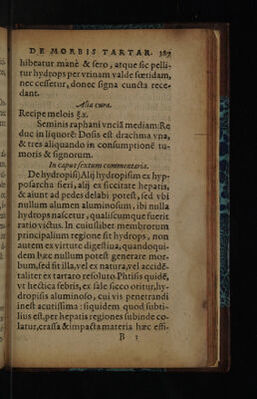 DE MORBIS TARTAR. 389
hibeatur manè & sero, atque sic pelli-
tur hydrops per vrinam valde fœtidam,
nec cessetur, donec signa cuncta rece-
dant.
Alia cura.
Recipe melois ℥x.
Seminis raphani vnciā mediam: Re
duc in liquorē: Dosis est drachma vna,
& tres aliquando in consumptionē tu-
moris & signorum.
In caput sextum commentaria.
De hydropisi) Alij hydropisim ex hyp-
posarcha fieri, alij ex siccitate hepatis,
& aiunt ad pedes delabi potest, sed vbi
nullum alumen aluminosum, ibi nulla
hydrops nascetur, qualiscumque fuerit
ratio victus. In cuiuslibet membrorum
principalium regione fit hydrops, non
autem ex virtute digestiua, quandoqui-
dem hæc nullum potest generare mor-
bum, sed fit illa, vel ex natura, vel accidē-
taliter ex tartaro resoluto. Phtisis quidē,
vt hectica febris, ex sale sicco oritur, hy-
dropisis aluminoso, cui vis penetrandi
inest acutissima: siquidem quod subti-
lius est, per hepatis regiones subinde co-
latur, crassa & impacta materia hæc effi-
B 3